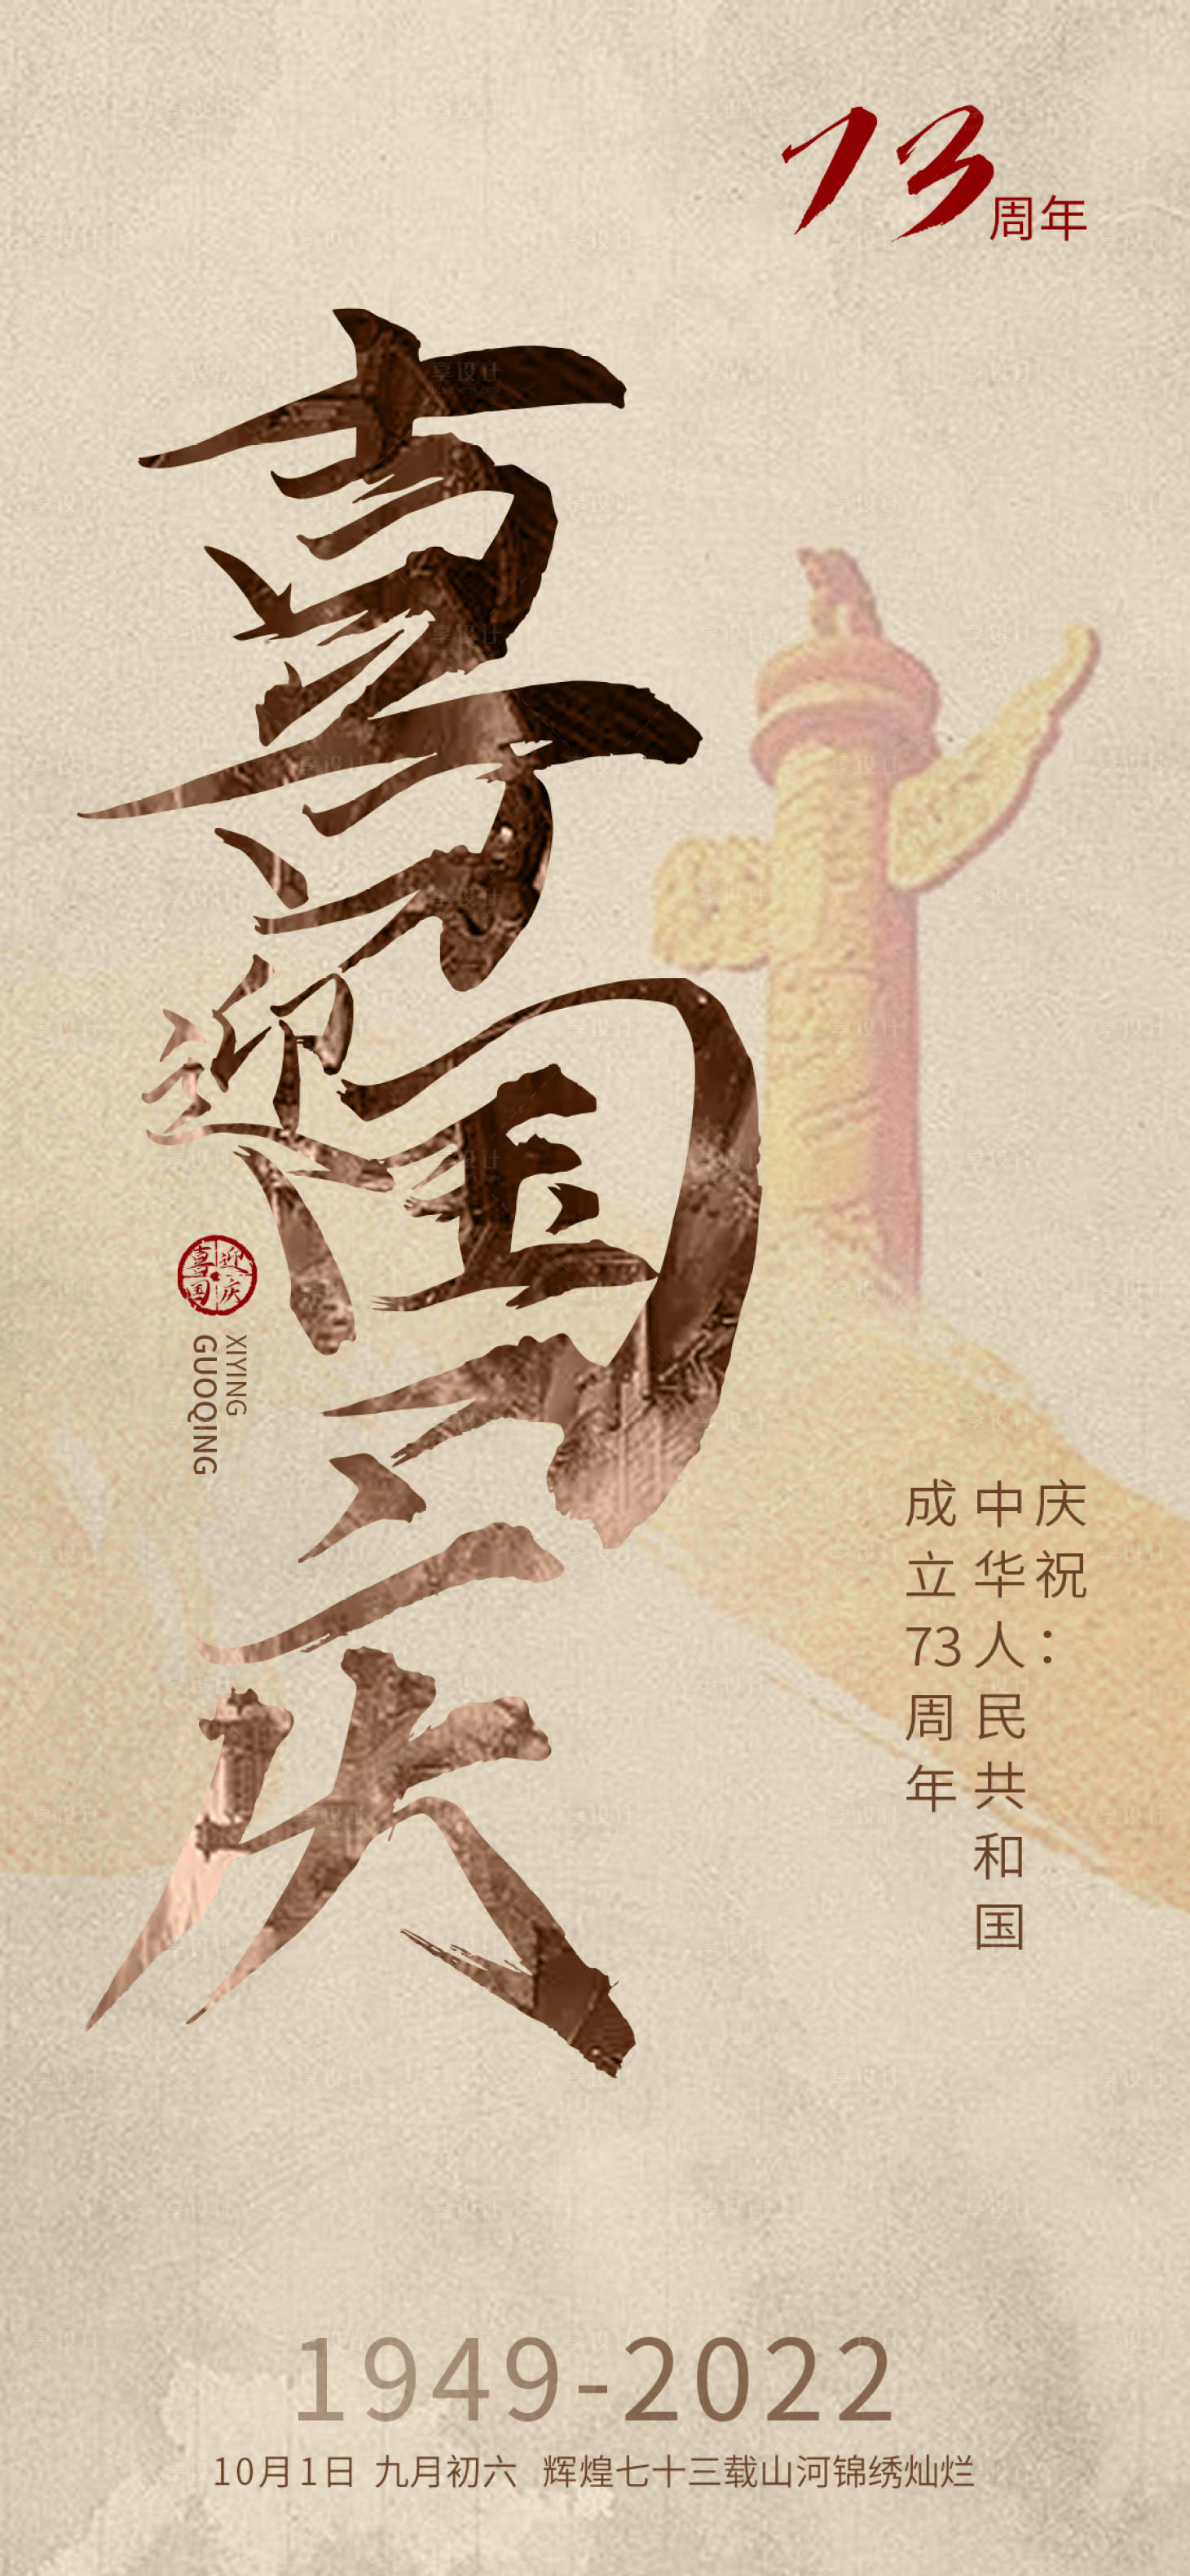 73周年
喜迎国庆
喜迎国庆
XIYING
GUOQING
庆祝：
中华人民共和国
成立73周年
1949-2022
10月1日 九月初六 辉煌七十三载山河锦绣灿烂
享设计